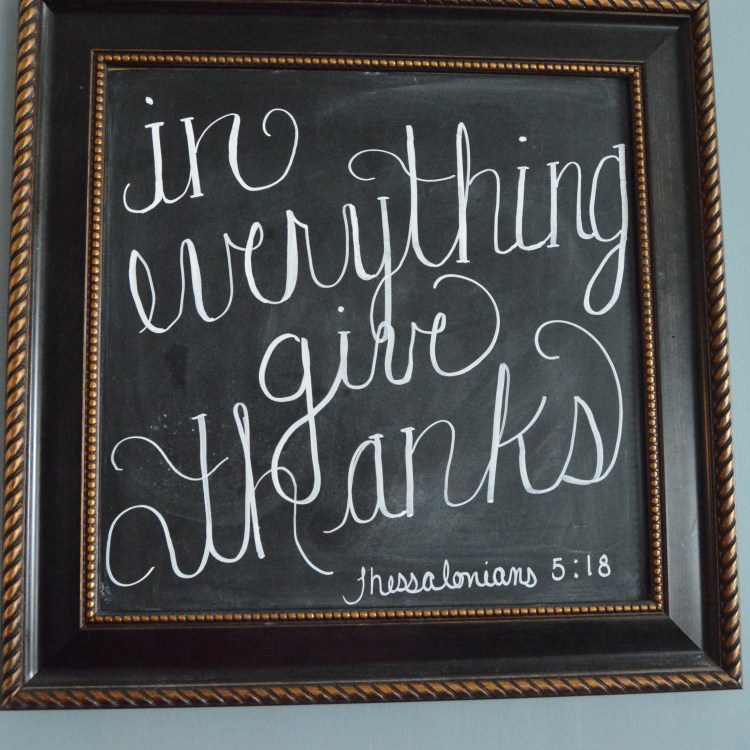 in
everything
give
thanks
Thessalonians 5:18